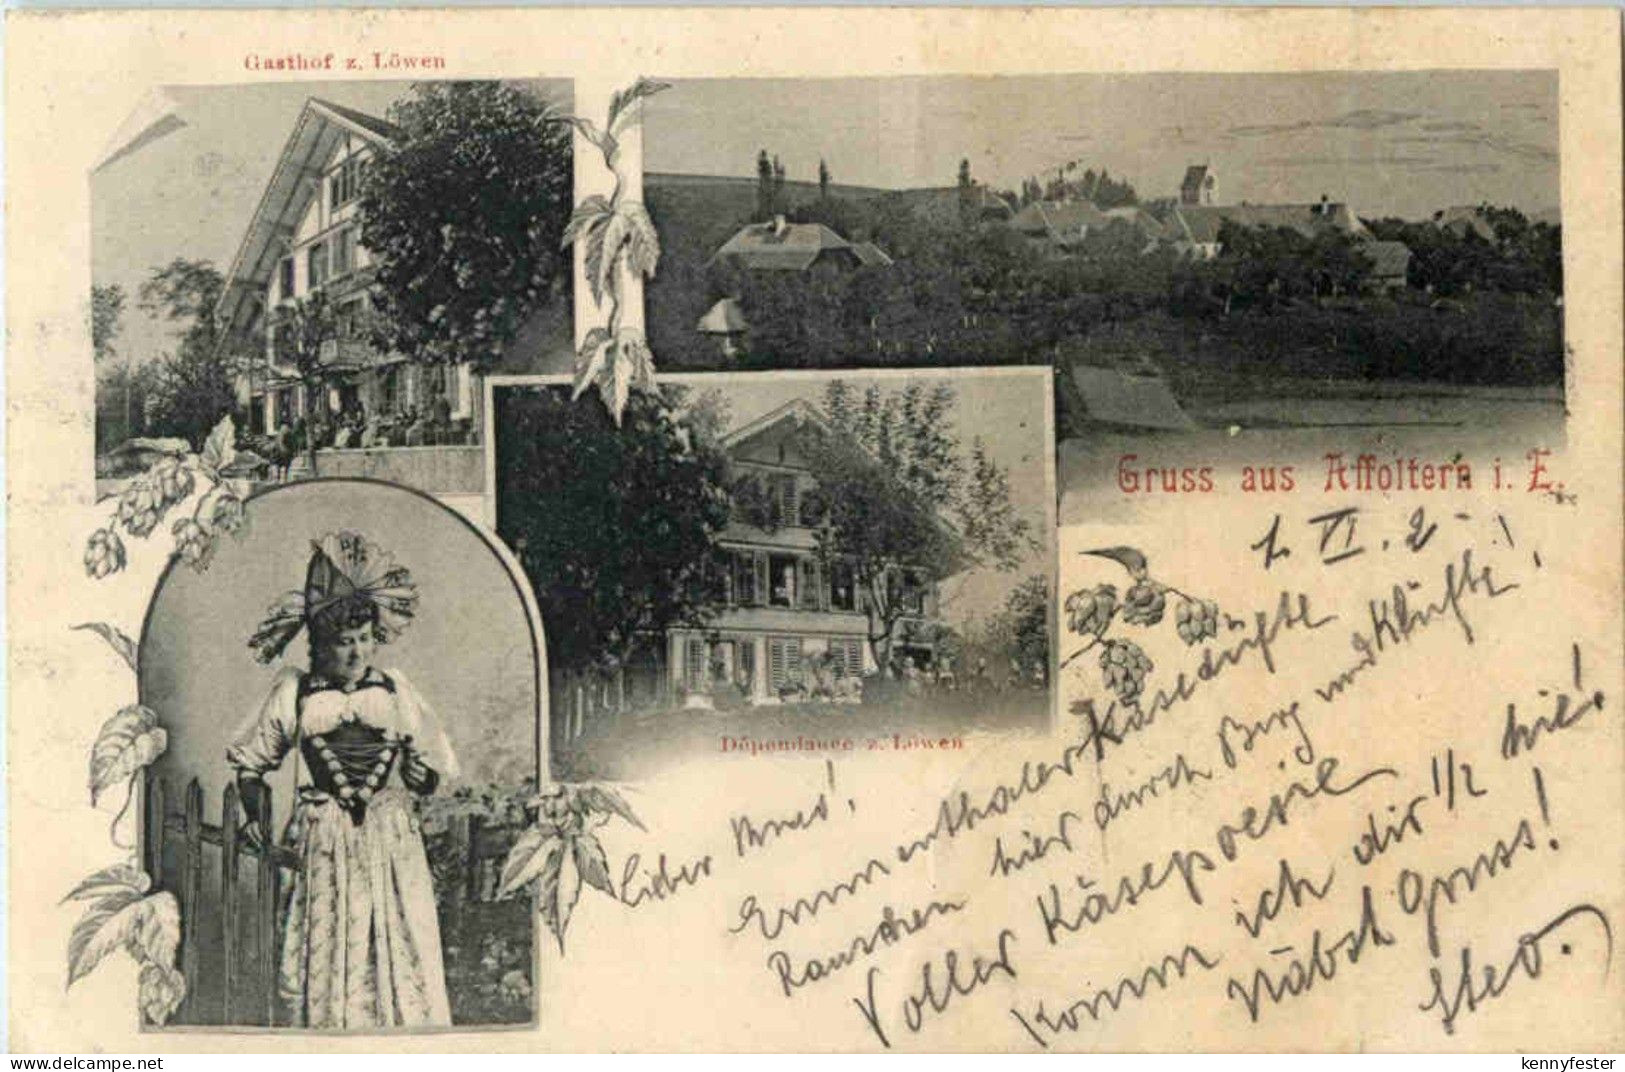 Gasthof z. Löwen
Gruss aus Affoltern i. E.
Dépendance z. Löwen
1. VI. 2
Lieber
Emmenthaler Käsedüfte
Rauschen hier durch Burg und Klüfte!
Voller Käsepoesie
Komm ich dir 1/2 hie!
Näbst Gruss!
www.delcampe.net
kennyfester